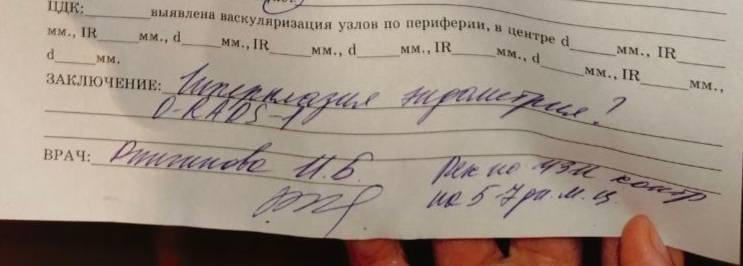 ЦДК: выявлена васкуляризация узлов по периферии, в центре d мм., IR
мм., IR мм., d мм., IR мм., d мм., IR мм., d мм., IR мм.,
d мм.
ЗАКЛЮЧЕНИЕ: Гиперплазия эндометрия?
O-RADS-1
ВРАЧ: И.Б. Рек по УЗИ контр
на 5-7 дн. м. ц